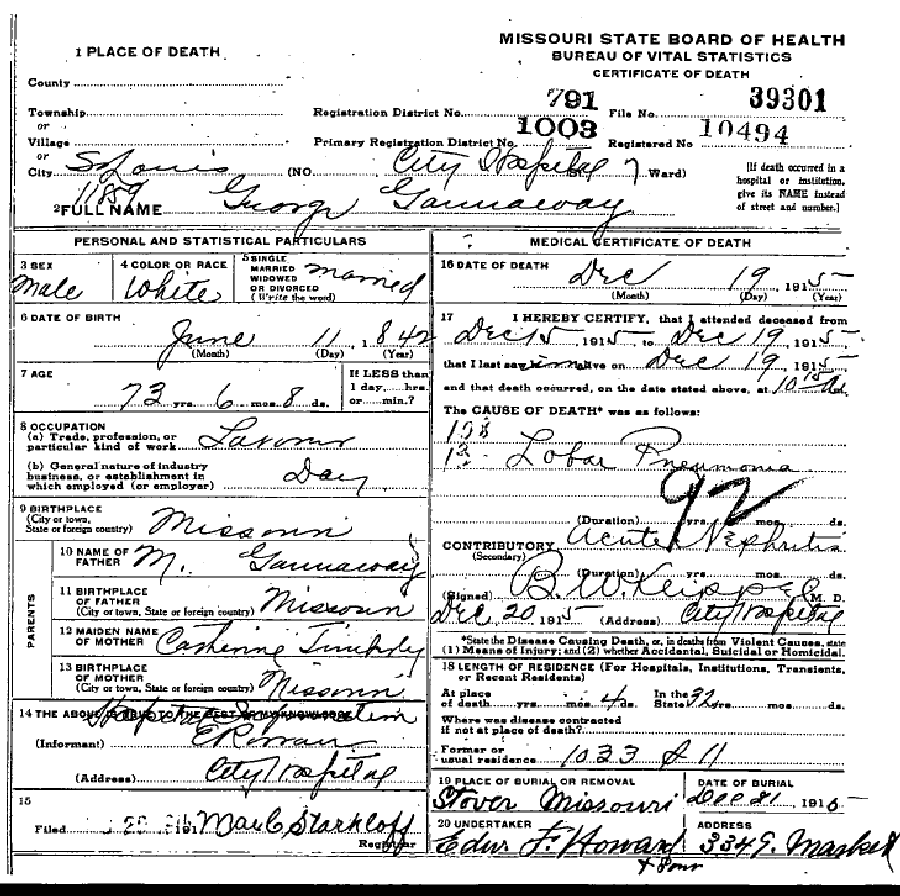 MISSOURI STATE BOARD OF HEALTH
BUREAU OF VITAL STATISTICS
CERTIFICATE OF DEATH
1 PLACE OF DEATH
County
Township
or
Village
or
City St Louis
Registration District No. 791
File No. 39301
Primary Registration District No. 1003
Registered No. 10494
(NO. City Hospital St. 7 Ward)
[If death occurred in a
hospital or institution,
give its NAME instead
of street and number.]
11859
2 FULL NAME George Gannaway
PERSONAL AND STATISTICAL PARTICULARS
3 SEX
Male
4 COLOR OR RACE
White
5 SINGLE
MARRIED
WIDOWED
OR DIVORCED
(Write the word)
Married
6 DATE OF BIRTH
June 11, 1842
(Month) (Day) (Year)
7 AGE
73 yrs. 6 mos. 8 ds.
If LESS than
1 day,....hrs.
or....min.?
8 OCCUPATION
(a) Trade, profession, or
particular kind of work
(b) General nature of industry
business, or establishment in
which employed (or employer) Day
9 BIRTHPLACE
(City or town,
State or foreign country) Missouri
PARENTS
10 NAME OF
FATHER M. Gannaway
11 BIRTHPLACE
OF FATHER
(City or town, State or foreign country) Missouri
12 MAIDEN NAME
OF MOTHER
13 BIRTHPLACE
OF MOTHER
(City or town, State or foreign country) Missouri
14 THE ABOVE IS TRUE TO THE BEST OF MY KNOWLEDGE
Hospital Information
(Informant)
(Address) City Hospital
15
Filed Max C Starkloff
Registrar
MEDICAL CERTIFICATE OF DEATH
16 DATE OF DEATH
Dec 19, 1915
(Month) (Day) (Year)
17 I HEREBY CERTIFY, that I attended deceased from
Dec 15 1915 to Dec 19, 1915
that I last saw him alive on Dec 19, 1915
and that death occurred, on the date stated above, at 10
The CAUSE OF DEATH* was as follows:
Lobar Pneumonia
92
(Duration) yrs. mos. ds.
CONTRIBUTORY Acute Nephritis
(Secondary)
(Duration) yrs. mos. ds.
(Signed) B. W. M. D.
Dec 20 1915 (Address) City Hospital
*State the Disease Causing Death, or, in deaths from Violent Causes, state
(1) Means of Injury; and (2) whether Accidental, Suicidal or Homicidal.
18 LENGTH OF RESIDENCE (For Hospitals, Institutions, Transients,
or Recent Residents)
At place
of death yrs. mos. 4 ds.
In the
State 32 yrs. mos. ds.
Where was disease contracted
if not at place of death?
Former or
usual residence 1033 11
19 PLACE OF BURIAL OR REMOVAL
Stover Missouri
DATE OF BURIAL
Dec 21, 1915
20 UNDERTAKER
Edw F. Howard
+ Sons
ADDRESS
Market